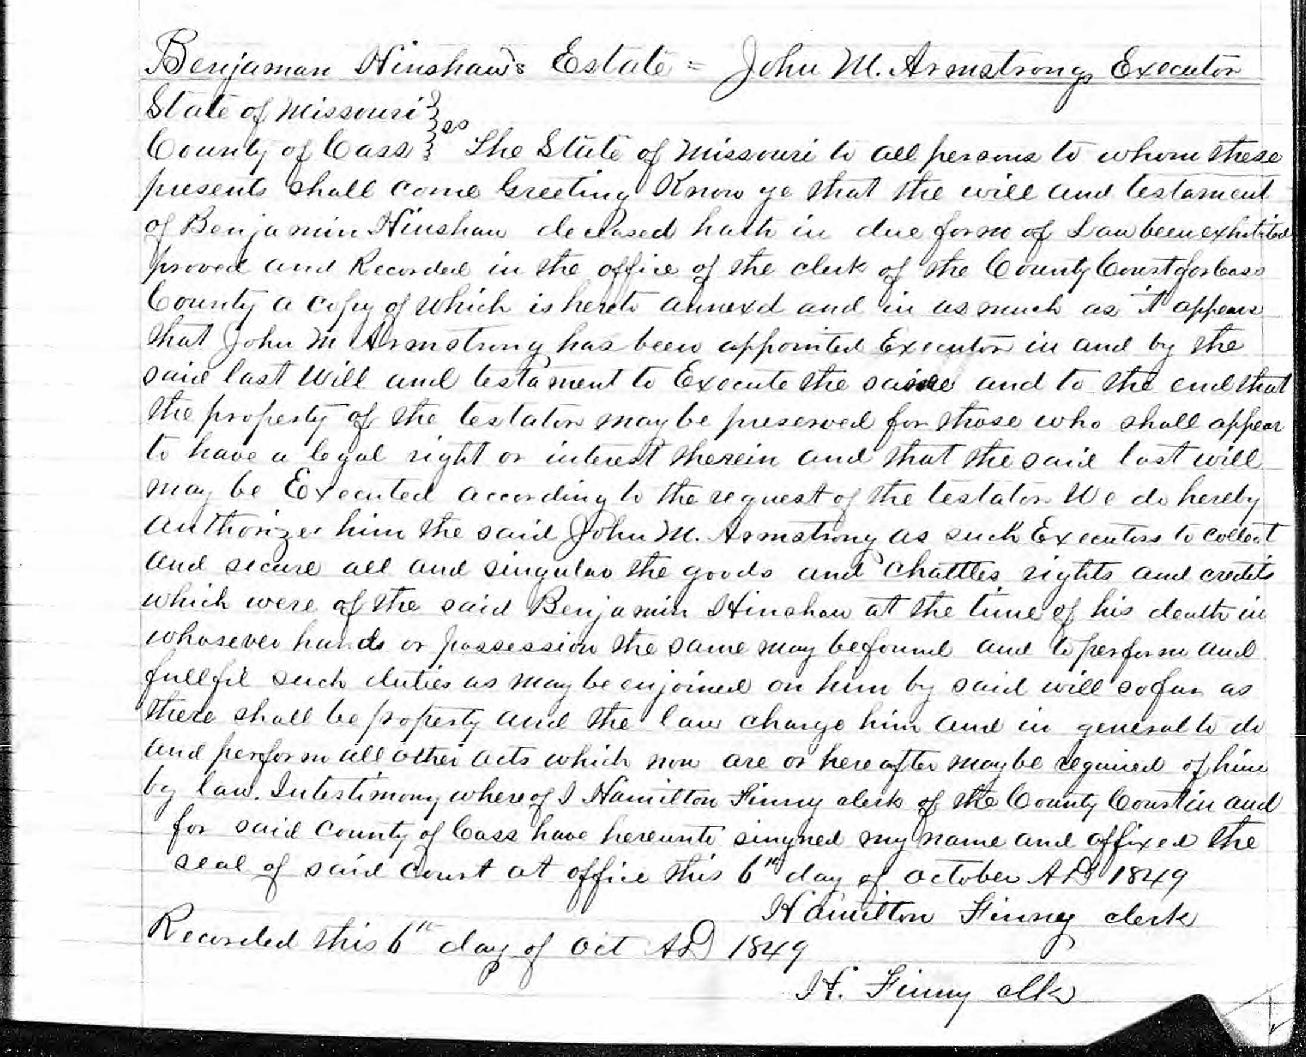 Benjaman Hinshaw's Estate = John M. Armstrong Executor
State of Missouri }
County of Cass } ss The State of Missouri to all persons to whom these
presents shall come Greeting Know ye that the will and testament
of Benjamin Hinshaw deceased hath in due form of Law been exhibited
proved and Recorded in the office of the clerk of the County Court for Cass
County a copy of which is hereto annexd and in as much as it appears
that John M Armstrong has been appointed Executor in and by the
said last Will and testament to Execute the same and to the end that
the property of the testator may be preserved for those who shall appear
to have a legal right or interest therein and that the said last will
may be Executed according to the request of the testator We do hereby
authorize him the said John M. Armstrong as such Executors to collect
and secure all and singular the goods and chattles rights and credits
which were of the said Benjamin Hinshaw at the time of his death in
whosever hands or possession the same may be found and to perform and
fullfil such duties as may be enjoined on him by said will so far as
there shall be property and the law charge him and in general to do
and perform all other acts which now are or here after may be required of him
by law. In testimony where of I Hamilton Finny clerk of the County Court in and
for said County of Cass have hereunto singned my name and affixed the
seal of said court at office this 6th day of october AD 1849
Hamilton Finney clerk
Recorded this 6th day of Oct AD 1849
H. Finny clk